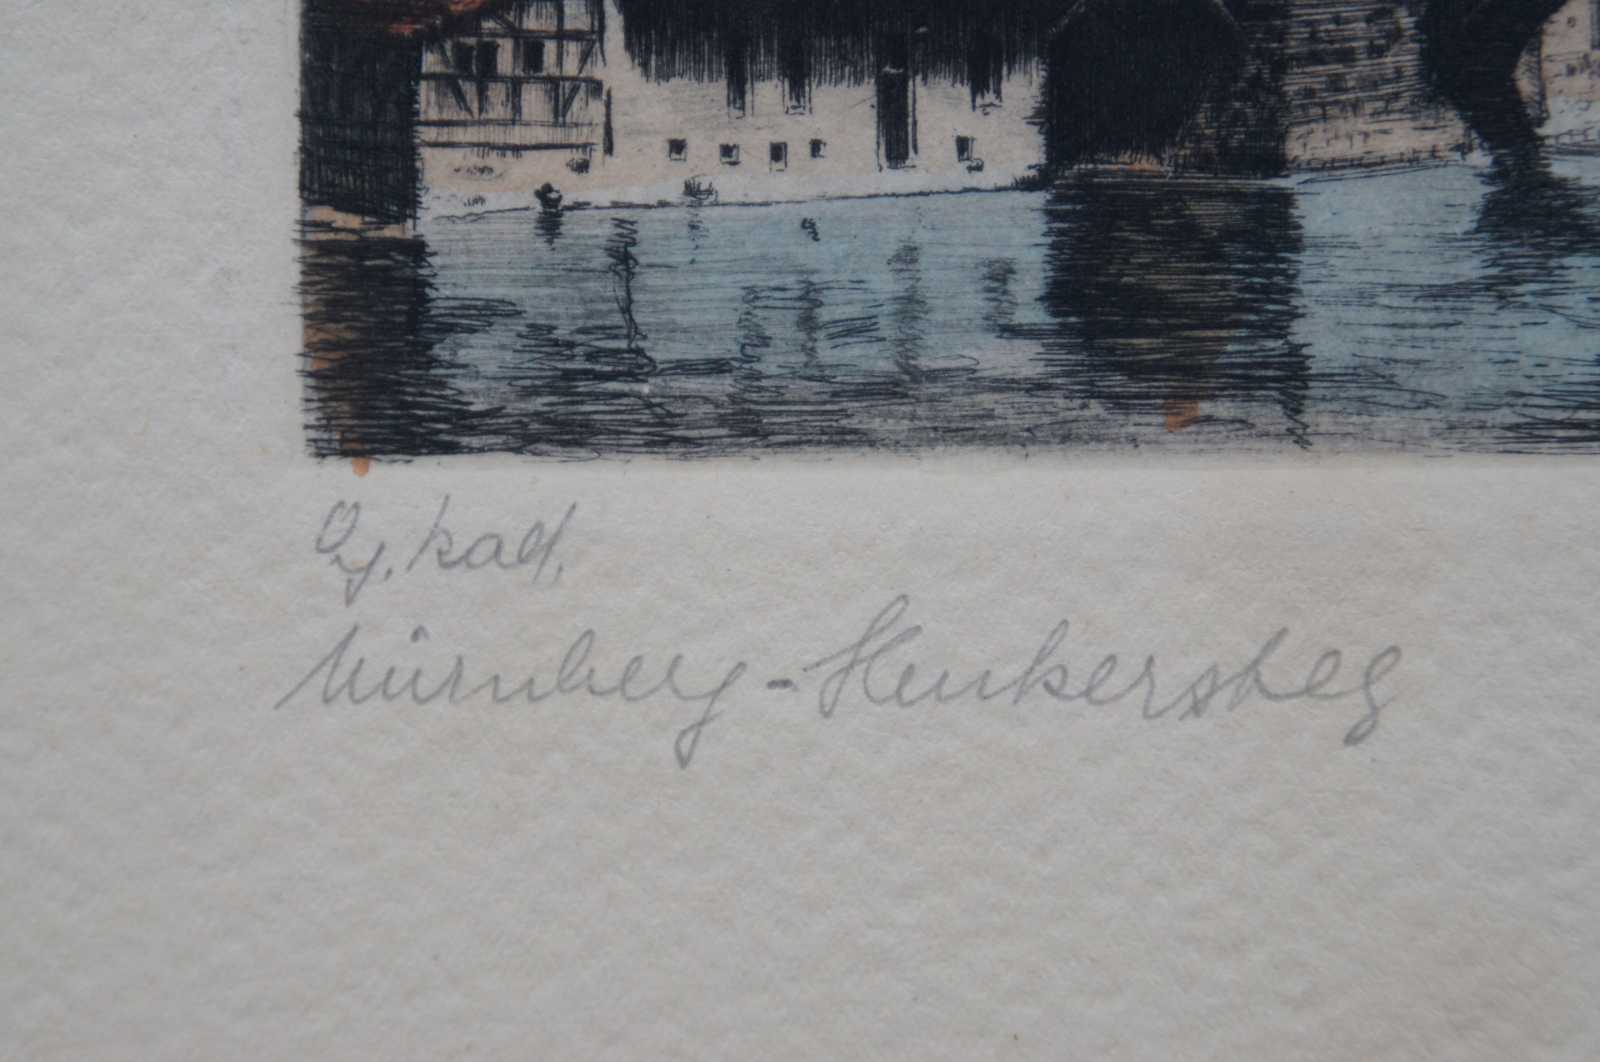 Og. Rad.
Nürnberg-Henkersteg